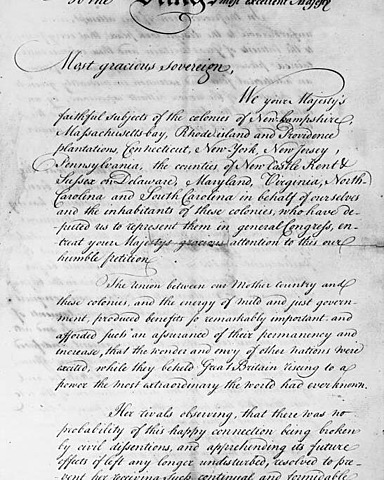 To the King's most excellent Majesty
Most gracious sovereign,
We your Majesty's
faithful subjects of the colonies of New-hampshire,
Massachusetts-bay, Rhode island and Providence
plantations, Connecticut, New-York, New Jersey,
Pennsylvania, the counties of New Castle Kent &
Sussex on Delaware, Maryland, Virginia, North-
Carolina and South Carolina in behalf of ourselves
and the inhabitants of these colonies, who have de-
puted us to represent them in general Congress, en-
treat your Majestys gracious attention to this our
humble petition.
The union between our Mother country and
these colonies, and the energy of mild and just govern-
ment, produced benefits so remarkably important, and
afforded such an assurance of their permanency and
increase, that the wonder and envy of other nations were
excited, while they beheld Great Britain riseing to a
power the most extraordinary the world had ever known.
Her rivals observing, that there was no
probability of this happy connection being broken
by civil dissentions, and apprehending its future
effects if left any longer undisturbed, resolved to pre-
vent her receiving such continual and formidable